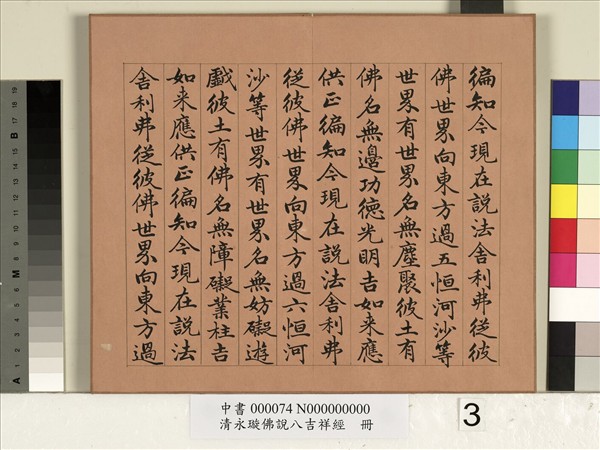 徧知今現在説法舍利弗從彼
佛世界向東方過五恒河沙等
世界有世界名無塵聚彼土有
佛名無邊功德光明吉如来應
供正徧知今現在説法舍利弗
從彼佛世界向東方過六恒河
沙等世界有世界名無妨礙遊
戲彼土有佛名無障礙業柱吉
如来應供正徧知今現在説法
舍利弗從彼佛世界向東方過
中書 000074 N000000000
清永璇佛說八吉祥經 冊
3
A 1 2 3 4 5 6 M 8 9 10 11 12 13 14 15 B 17 18 19